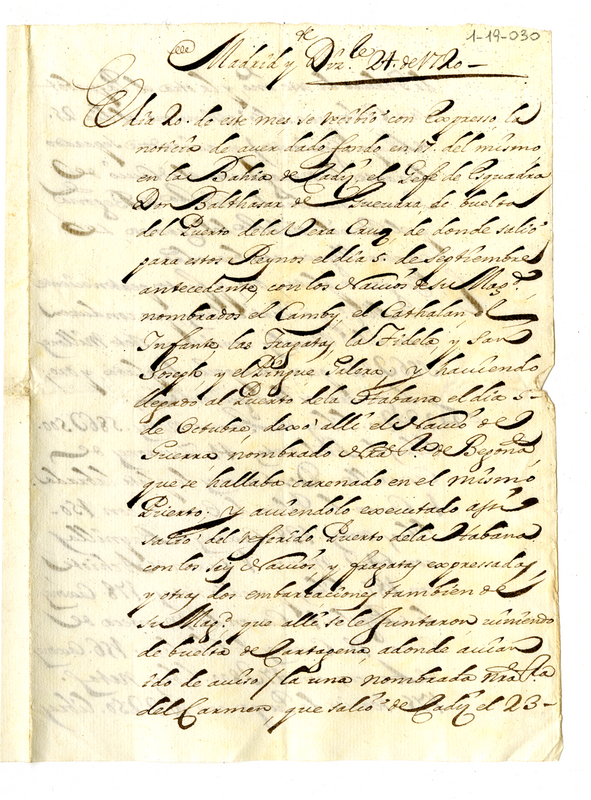 1-19-030
Madrid y Diz.re 24. de 1720-
El dia 20. de este mes se recibiò con Expresso la
noticia de aver dado fondo en 17. del mismo
en la Bahia de Cadiz el Gefe de Esquadra
Don Balthasar de Guevara, de buelta
del Puerto de la Vera Cruz, de donde saliò
para estos Reynos el dia 5. de Septiembre
antecedente, con los Navios de su Magd.
nombrados el Camby, el Cathalan, el
Infante, las Fragatas, la Fidela, y San
Joseph, y el Pingue Galera; y haviendo
llegado al Puerto de la Habana el dia 5-
de Octubre, dexò alli el Navio de
Guerra nombrado Nra. Sra. de Begoña
que se hallaba carenado en el mismo
Puerto; y aviendolo executado assi
saliò del referido Puerto de la Habana
con los seis Navios, y fragatas expressadas
y otras dos embarcaciones tambien de
su Magd. que alli se le juntaron viniendo
de buelta de Cartagena, adonde avian
ido de aviso / la una nombrada Nra. Sra.
del Carmen, que saliò de Cadiz el 23-